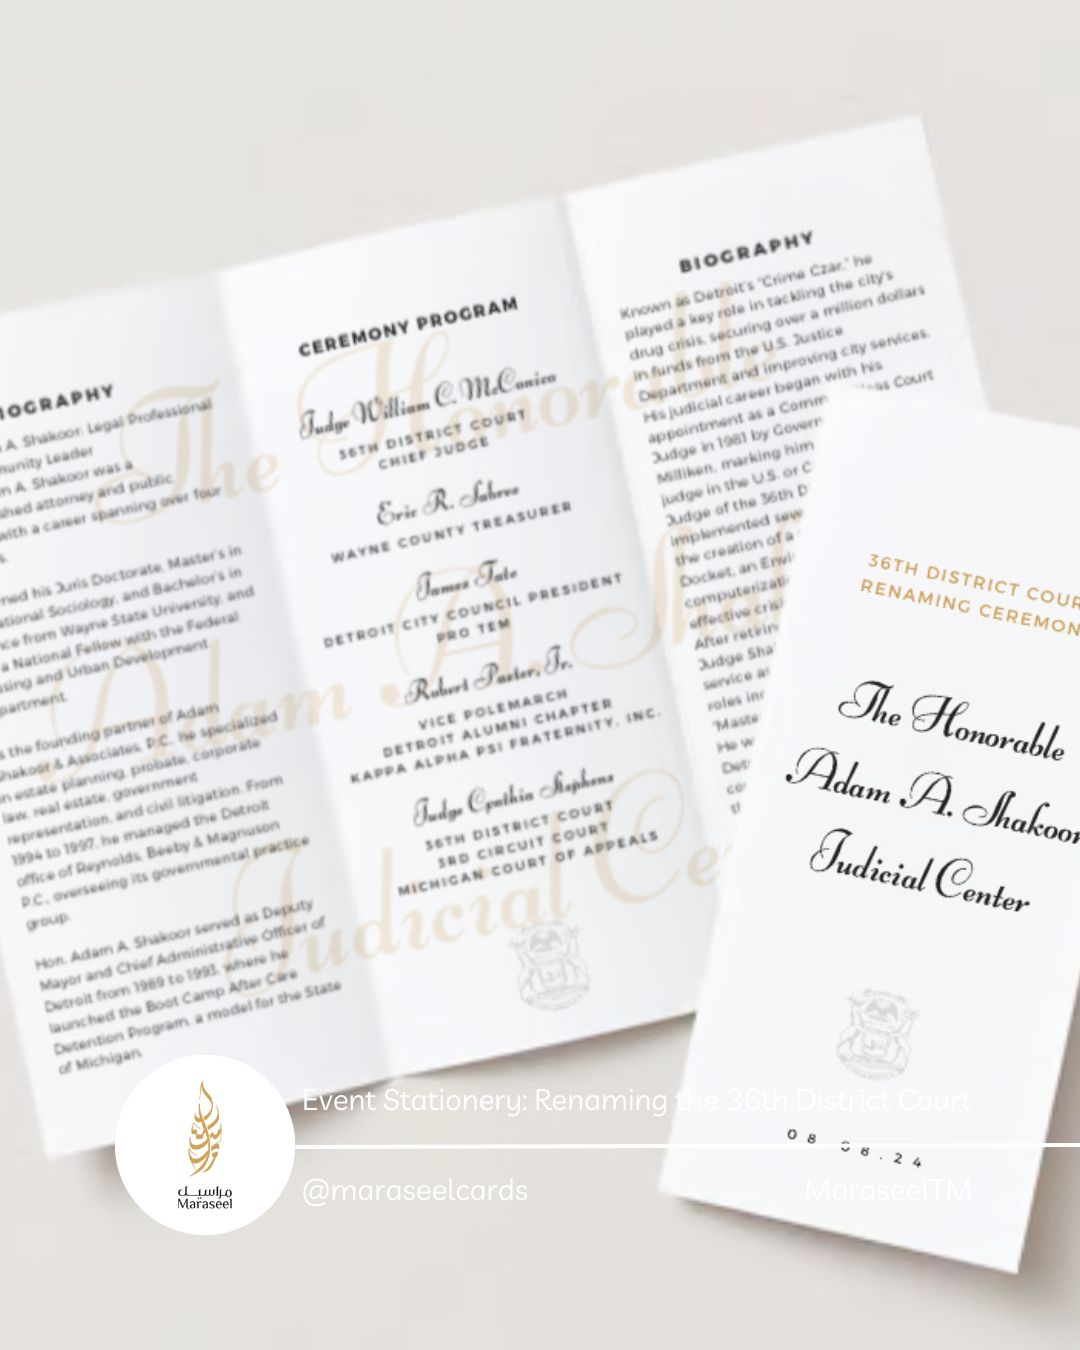 BIOGRAPHY
A. Shakoor: Legal Professional
Leader
A. Shakoor was a
attorney and public
with a career spanning over four
his Juris Doctorate, Master's in
Sociology, and Bachelor's in
from Wayne State University, and
a National Fellow with the Federal
and Urban Development
the founding partner of Adam
Shakoor & Associates, P.C., he specialized
in estate planning, probate, corporate
law, real estate, government
representation, and civil litigation. From
1994 to 1997, he managed the Detroit
office of Reynolds, Beeby & Magnuson
P.C., overseeing its governmental practice
group.
Hon. Adam A. Shakoor served as Deputy
Mayor and Chief Administrative Officer of
Detroit from 1989 to 1993, where he
launched the Boot Camp After Care
Detention Program, a model for the State
of Michigan.
The Honorable
Adam A. Shak
Judicial Ce
CEREMONY PROGRAM
Judge William C. McConico
36TH DISTRICT COURT
CHIEF JUDGE
Eric R. Sabree
WAYNE COUNTY TREASURER
James Tate
DETROIT CITY COUNCIL PRESIDENT
PRO TEM
Robert Porter, Jr.
VICE POLEMARCH
DETROIT ALUMNI CHAPTER
KAPPA ALPHA PSI FRATERNITY, INC.
Judge Cynthia Stephens
36TH DISTRICT COURT
3RD CIRCUIT COURT
MICHIGAN COURT OF APPEALS
BIOGRAPHY
Known as Detroit's "Crime Czar," he
played a key role in tackling the city's
drug crisis, securing over a million dollars
in funds from the U.S. Justice
Department and improving city services.
His judicial career began with his
appointment as a Comm leas Court
Judge in 1981 by Govern
Milliken, marking him
judge in the U.S. or C
Judge of the 36th D
implemented seve
the creation of a
Docket, an Envi
computerizati
effective cris
After retirin
Judge Sha
service as
roles inc
"Maste
He w
Det
co
th
36TH DISTRICT COUR
RENAMING CEREMON
The Honorable
Adam A. Shakoor
Judicial Center
08.08.24
مراسيل
Maraseel
Event Stationery: Renaming the 36th District Court
@maraseelcards
MaraseelTM